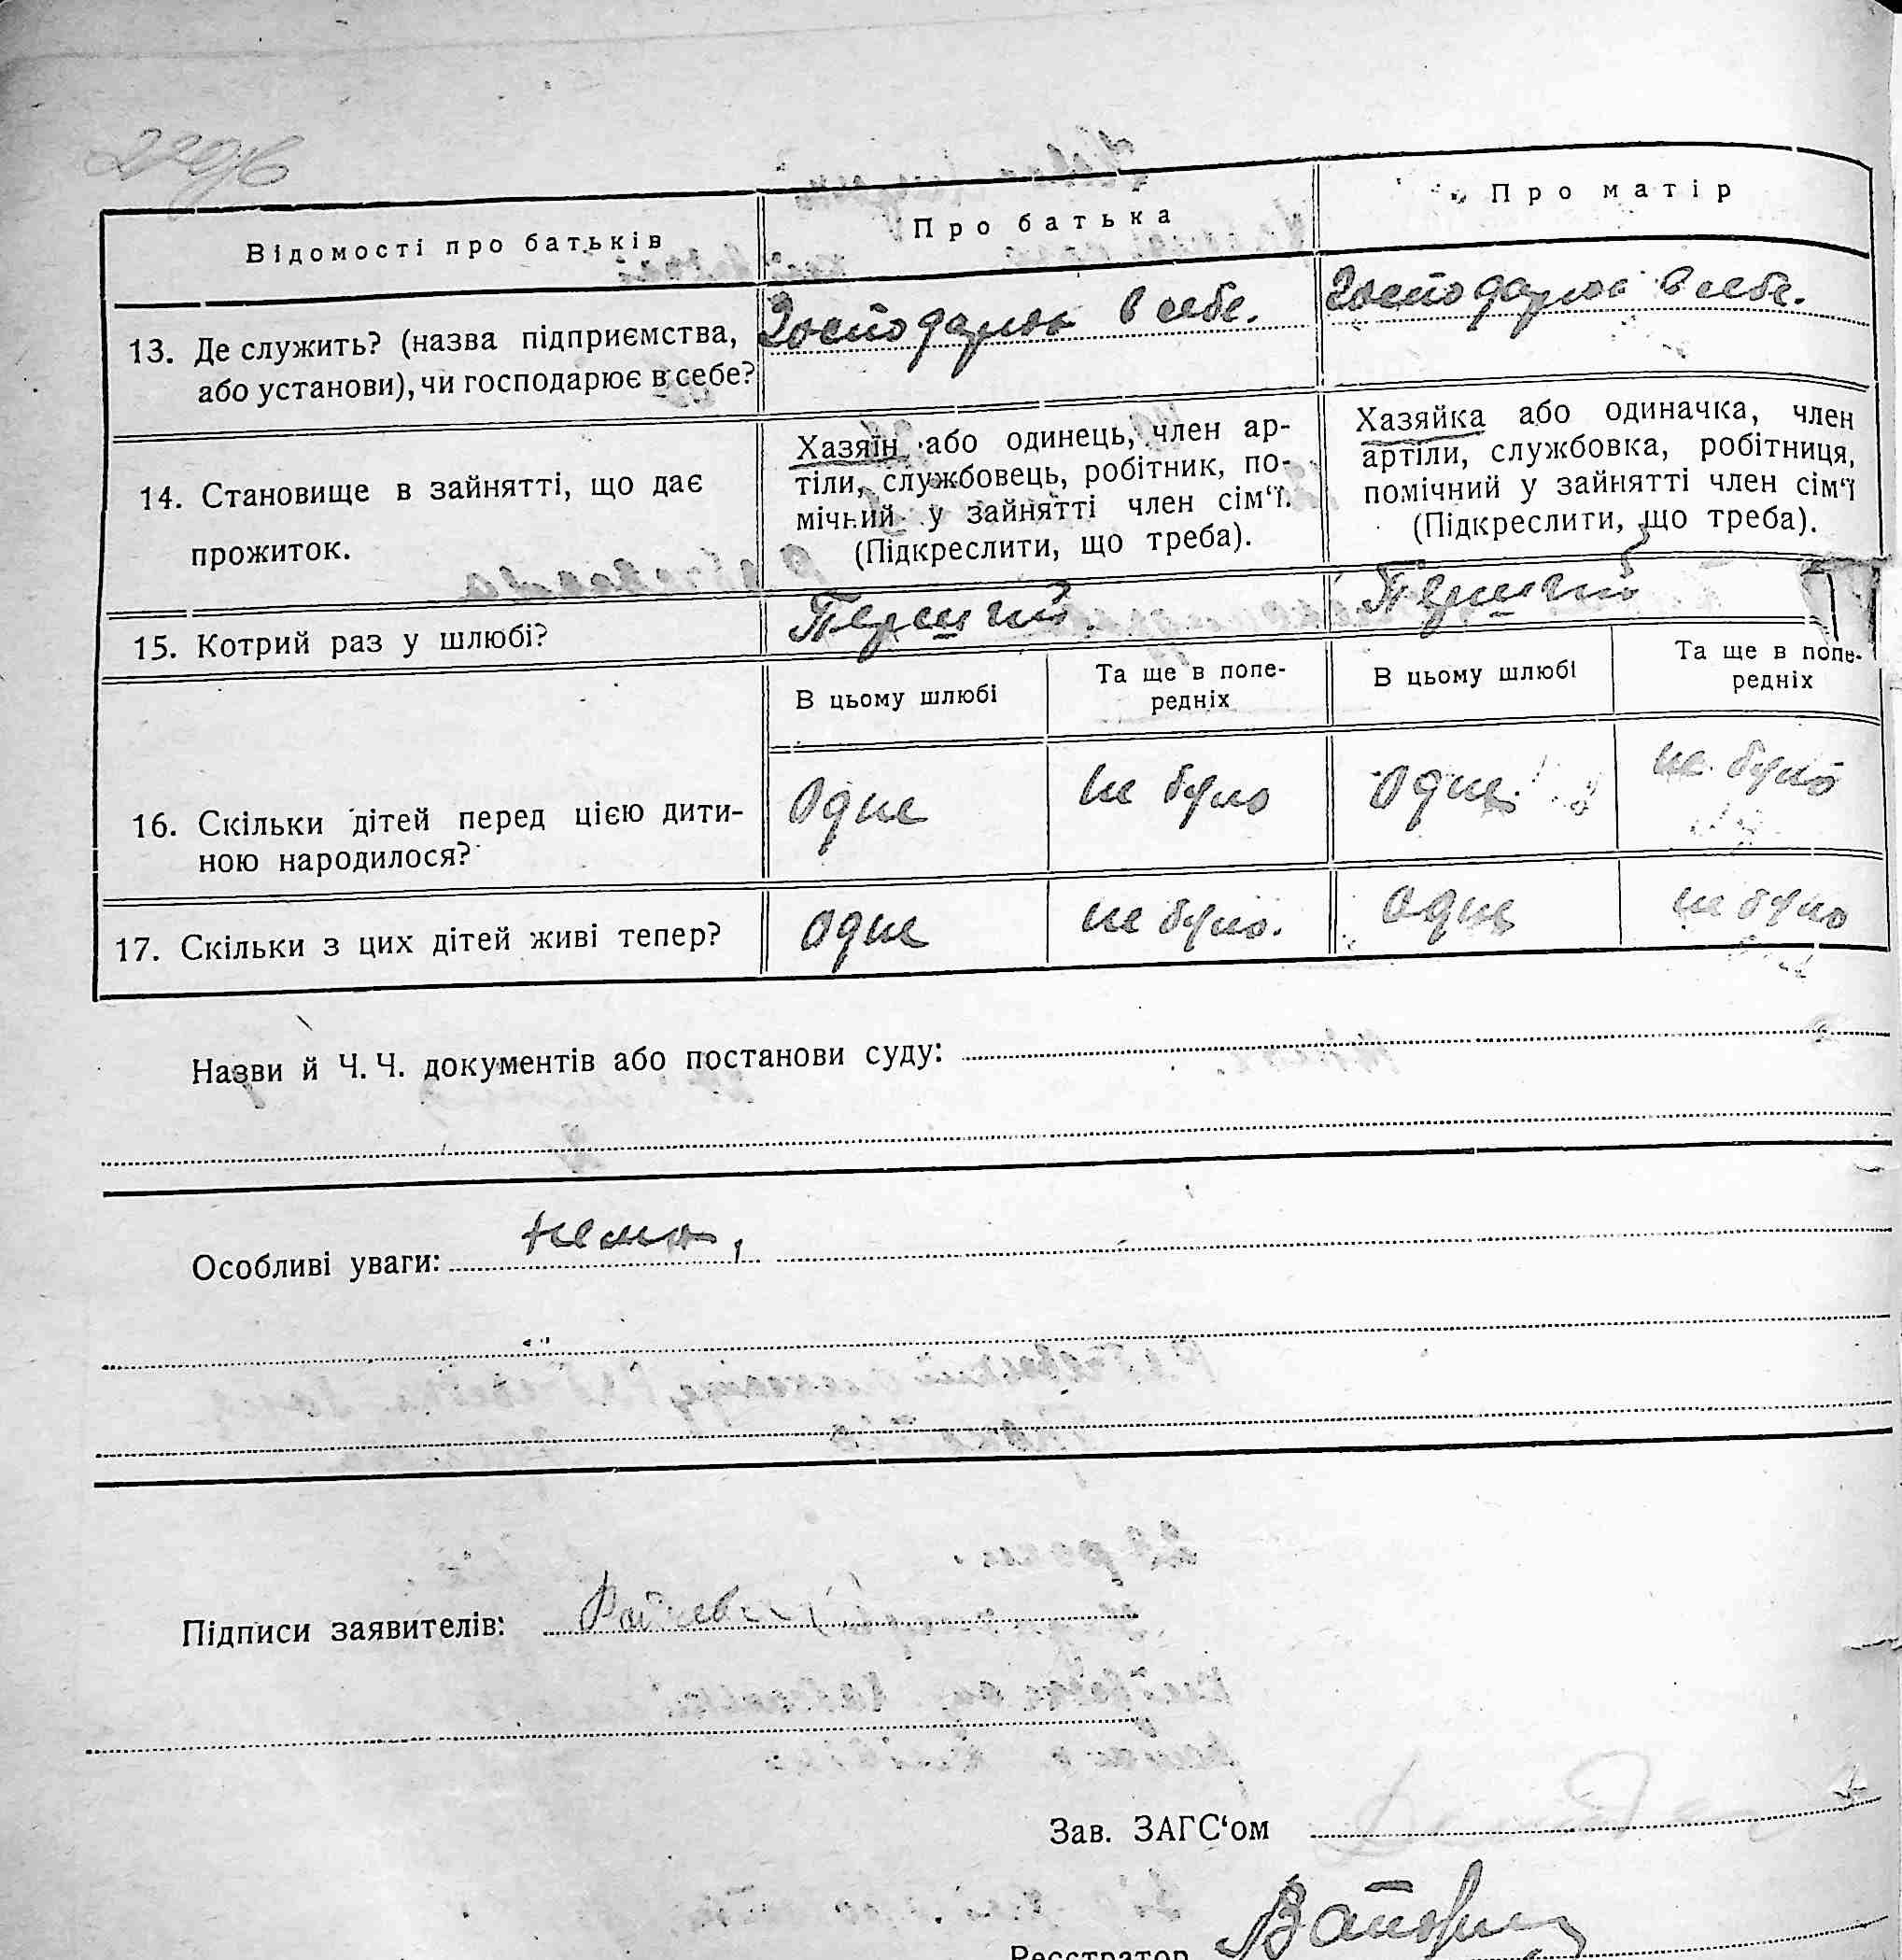 Відомості про батьків
Про батька
Про матір
13. Де служить? (назва підприємства,
або установи), чи господарює в себе?
Господарює в себе.
Господарює в себе.
14. Становище в зайнятті, що дає
прожиток.
Хазяїн або одинець, член ар-
тіли, службовець, робітник, по-
мічний у зайнятті член сім‘ї.
(Підкреслити, що треба).
Хазяйка або одиначка, член
артіли, службовка, робітниця,
помічний у зайнятті член сім‘ї
(Підкреслити, що треба).
15. Котрий раз у шлюбі?
Перший
Перший
В цьому шлюбі
Та ще в попе-
редніх
В цьому шлюбі
Та ще в попе-
редніх
16. Скільки дітей перед цією дити-
ною народилося?
Одне
не було
Одне
не було
17. Скільки з цих дітей живі тепер?
Одне
не було.
Одне
не було
Назви й Ч. Ч. документів або постанови суду:
Особливі уваги: нема,
Підписи заявителів:
Зав. ЗАГС‘ом
Реєстратор